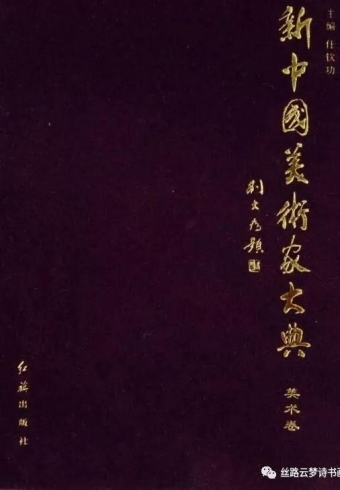 主编 任钦功
新中國美術家大典
刘文西题
美术卷
红旗出版社
丝路云梦诗书画